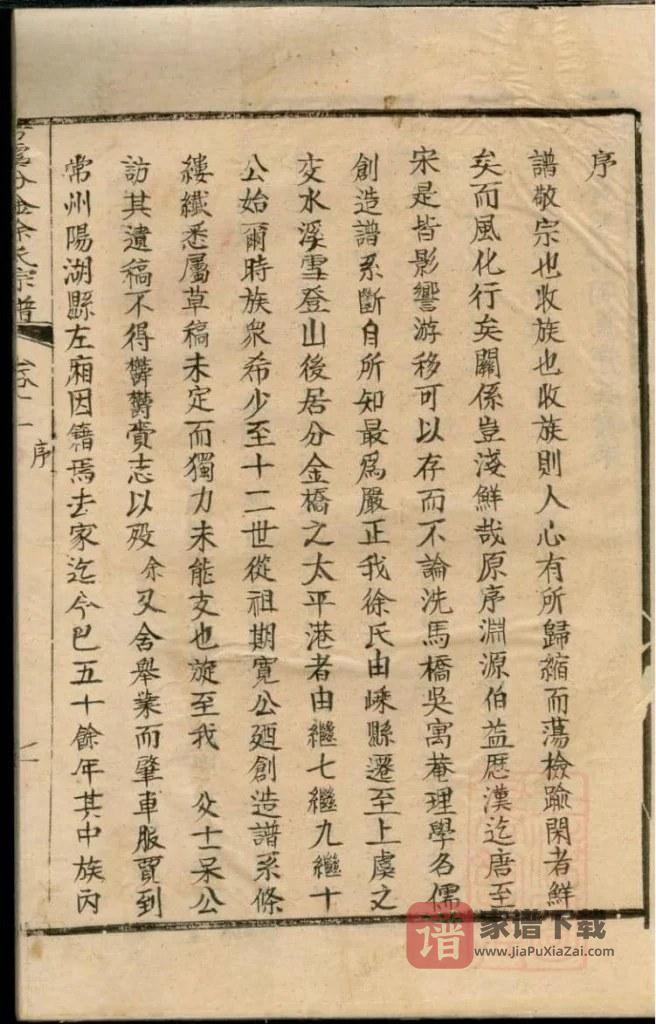 序
譜敬宗也收族也收族則人心有所歸縮而蕩檢踰閑者鮮
矣而風化行矣關係豈淺鮮哉原序淵源伯益厯漢迄唐至
宋是皆影響游移可以存而不論洗馬橋吳寓菴理學名儒
創造譜系斷自所知最爲嚴正我徐氏由嵊縣遷至上虞之
交水溪雪登山後居分金橋之太平港者由繼七繼九繼十
公始爾時族衆希少至十二世從祖期寬公廼創造譜系條
縷纖悉屬草稿未定而獨力未能支也旋至我 父十一杲公
訪其遺稿不得欝欝賫志以殁余又舍舉業而肇車服賈到
常州陽湖縣左廂因籍焉去家迄今已五十餘年其中族内
分金徐氏宗譜
序
一
家谱下载
www.JiaPuXiaZai.com
谱